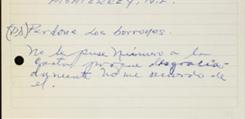 MONTERREY, N.L.
(P.D) Perdone los borrones.
No le puse número a la
carta porque desgracia-
damente no me acuerdo de
el.